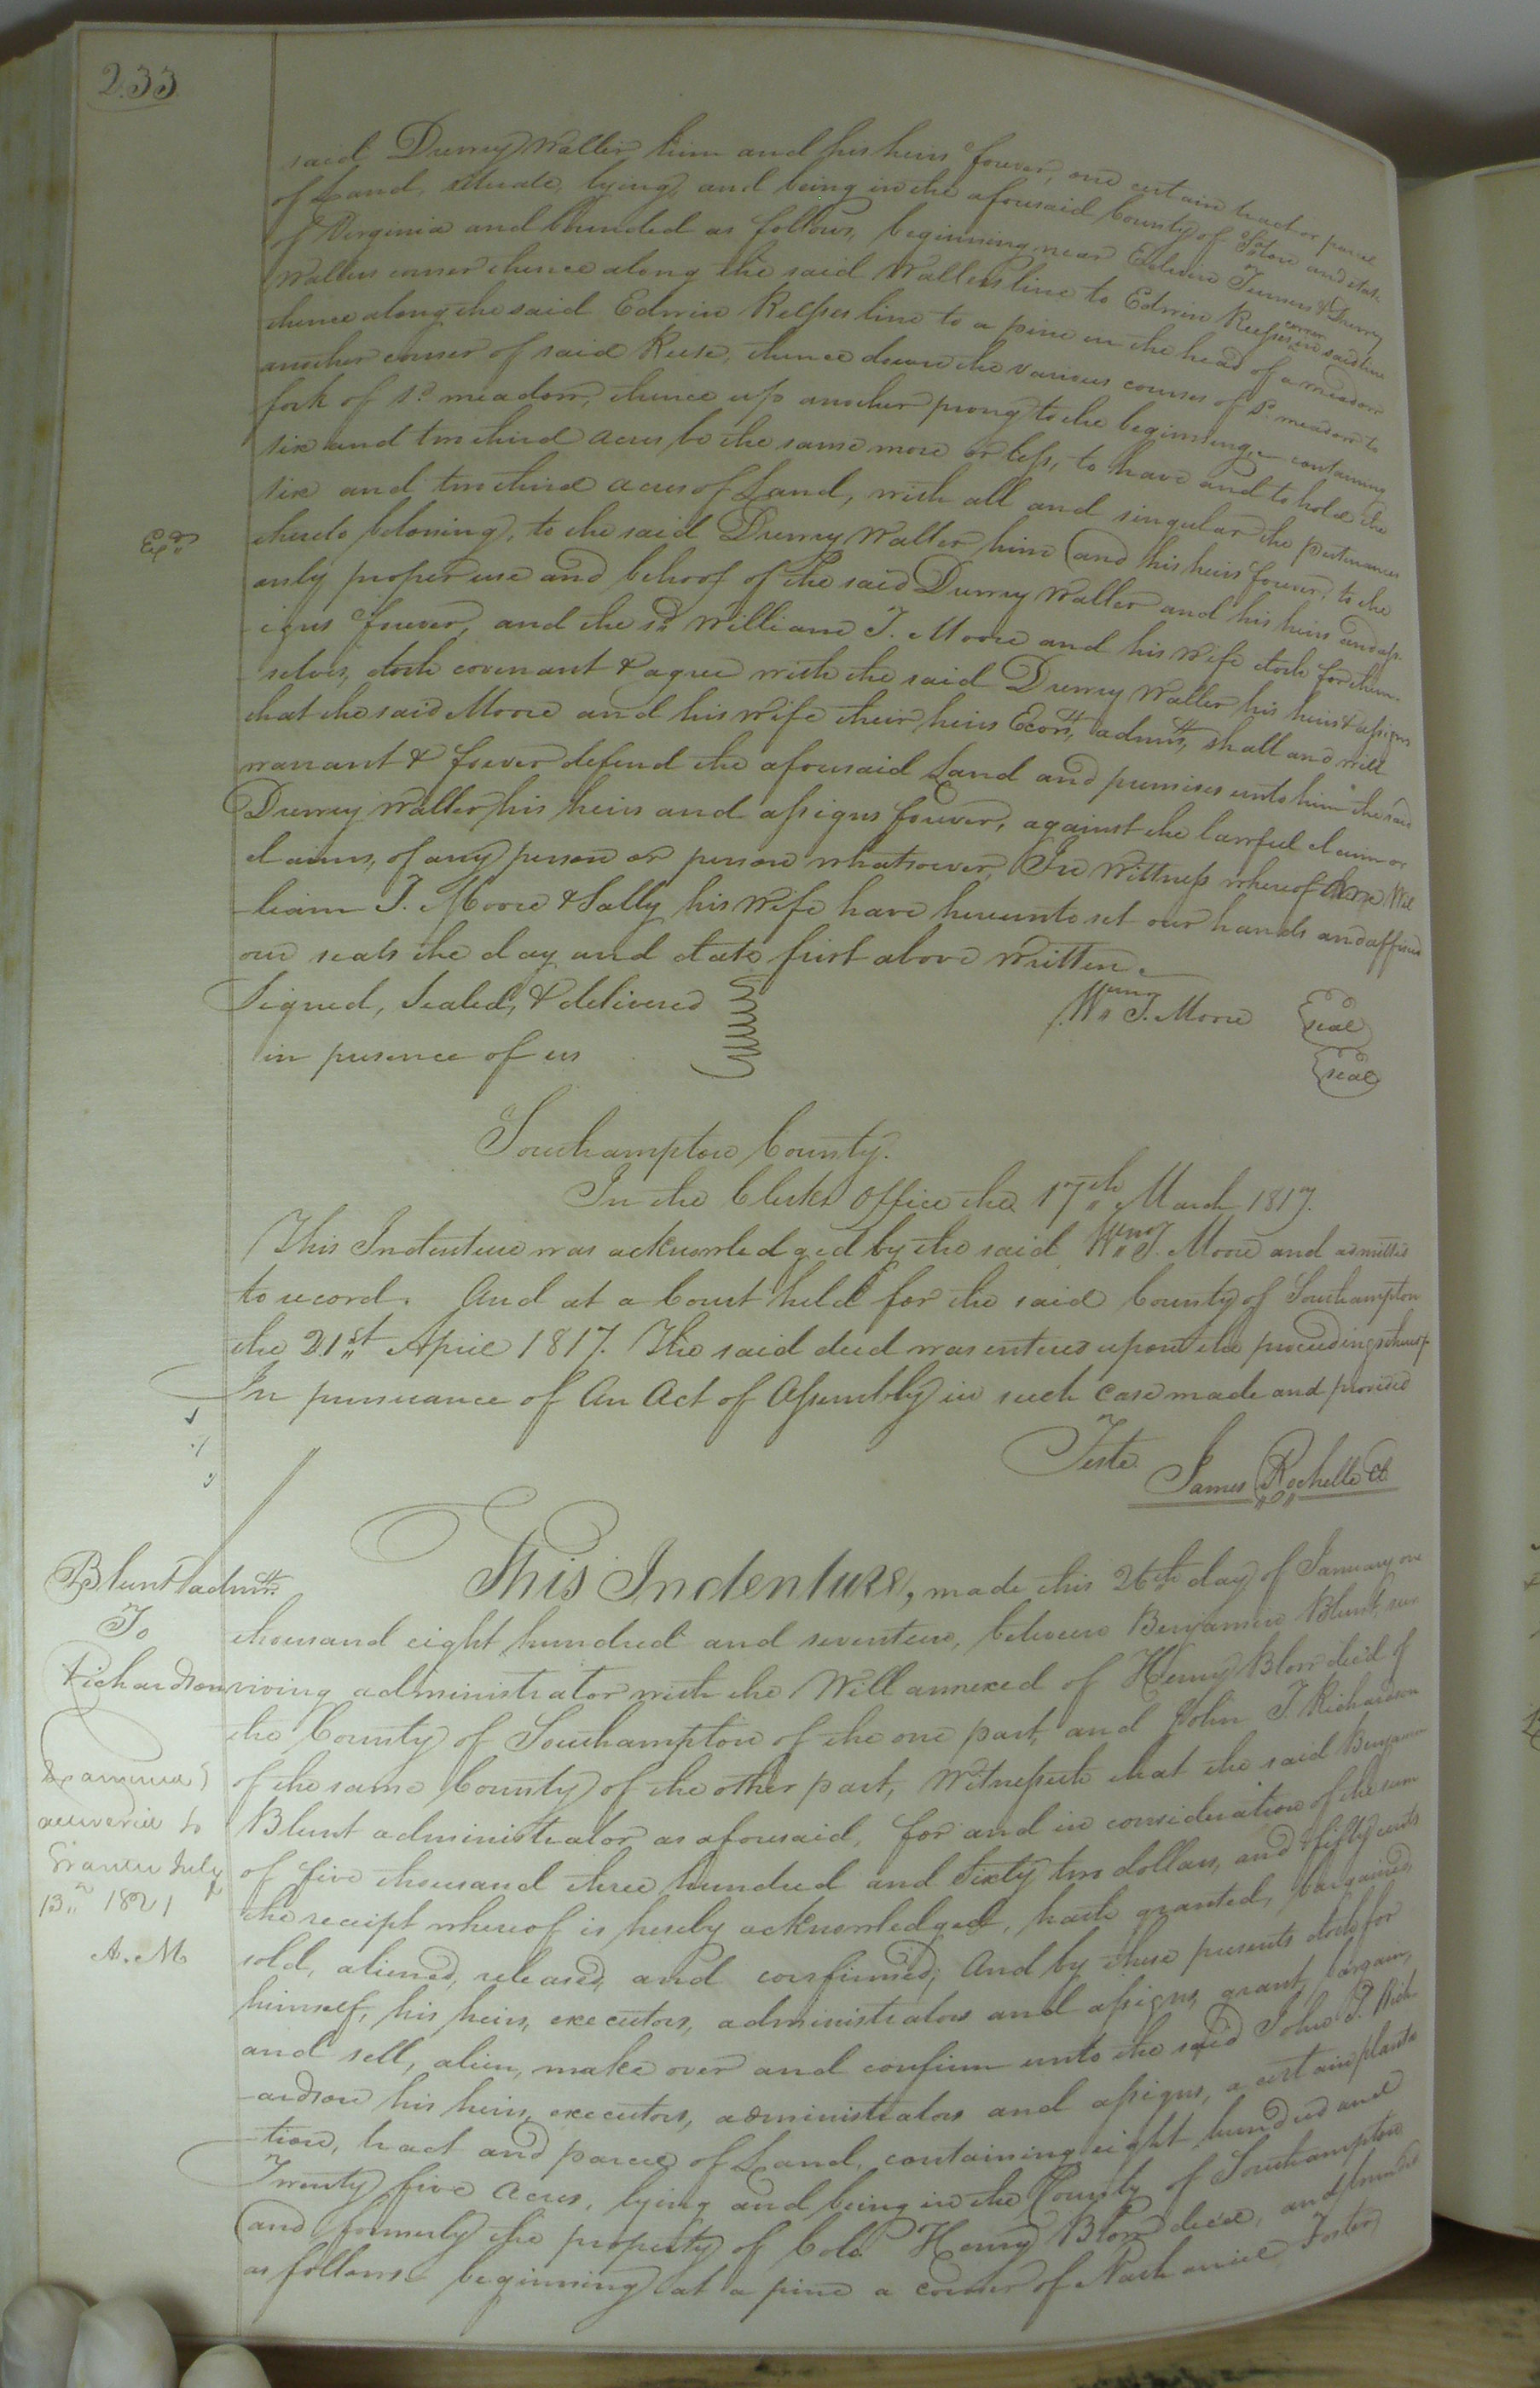 233
said Drewry Waller him and his heirs forever, one certain tract or parcel
of Land, situate, lying, and being in the aforesaid County of Soton and State
of Virginia and bounded as follows, beginning near Edwin Turners & Drewry
Wallers corner thence along the said Wallers line to Edwin Reeses corner in said line
thence along the said Edwin Reeses line to a pine in the head of a meadow
another corner of said Reese, thence down the various courses of sd. meadow to
fork of sd. meadow, thence up another prong to the beginning, containing
six and two third acres be the same more or less, to have and to hold the
six and two third acres of Land, with all and singular the pertenances
Exd.
thereto beloning, to the said Drewry Waller him and his heirs forever, to the
only proper use and behoof of the said Drewry Waller and his heirs and ass-
igns forever, and the sd. William T. Moore and his wife doth for them-
selves, doth covenant & agree with the said Drewry Waller his heirs & assigns
that the said Moore and his wife their heirs Ecors, admrs, shall and will
warrant & forever defend the aforesaid Land and premises unto him the said
Drewry Waller his heirs and assigns forever, against the lawful claim or
claims, of any person or persons whatsoever, In Wittness whereof We Wil
liam T. Moore & Sally his wife have hereunto set our hands and affixed
our seals the day and date first above written.
Signed, Sealed, & delivered
Wm. T. Moore seal
in presence of us
seal
Southampton County.
In the Clerks Office the 17th March 1817.
This Indenture was acknowledged by the said Wm. T. Moore and admitted
to record. And at a Court held for the said County of Southampton
the 21st April 1817. The said deed was entered upon the proceedings thereof
In pursuance of An Act of Assembly in such case made and provided
Teste.
James Rochelle Cl.
Blunt admr.
To
Richardson
Examined &
delivered to
Grantee July
13th 1821
A. M
This Indenture, made this 26th day of January one
thousand eight hundred and seventeen, between Benjamin Blunt, sur
viving administrator with the Will annexed of Henry Blow decd of
the County of Southampton of the one part, and John T. Richardson
of the same County of the other part, Witnesseth that the said Benjamin
Blunt administrator as aforesaid, for and in consideration of the sum
of five thousand three hundred and Sixty two dollars, and fifty cents
the receipt whereof is hereby acknowledged, hath granted, bargained,
sold, aliened, released, and confirmed; And by these presents doth for
himself, his heirs, executors, administrators and assigns, grant, bargain,
and sell, alien, make over and confirm unto the said John T. Rich
ardson his heirs, executors, administrators and assigns, a certain planta
tion, tract and parcel of Land, containing eight hundred and
Twenty five Acres, lying and being in the County of Southampton
and formerly the property of Colo. Henry Blow decd, and bounded
as follows beginning at a pine a corner of Nathaniel Foster